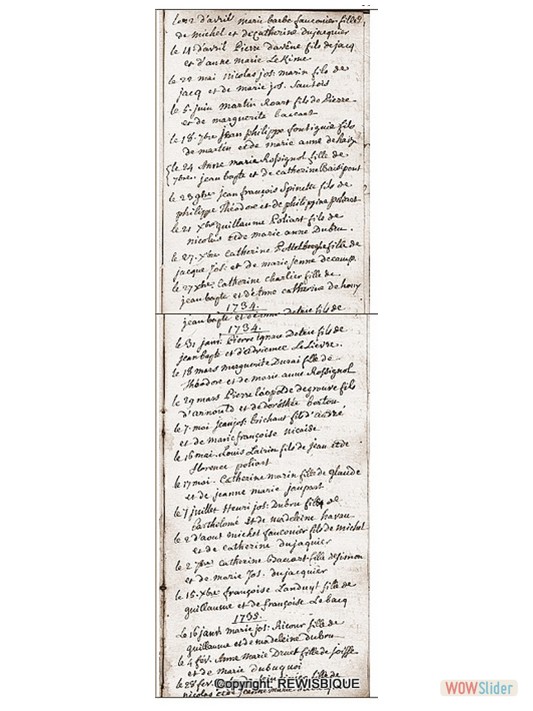 le 2 d'avril marie barbe fauconier fille
de michel et de catherine dujacquier
le 14 d'avril Pierre d'avéne fils de jacq
et d'anne marie LeKime
le 22 mai nicolas jos: marin fils de
jacq et de marie jos.
le 5 juin martin Roart fils de Pierre
et de marguerite baccart
le 18 7bre jean philippe fontignie fils
de martin et de marie anne
le 24 Anne marie Rossignol fille de
7bre jean bapte et de catherine
le 23 9bre jean françois Spinette fils de
philippe Théodore et de philippine
le 21 Xbre guillaume Poliart fils de
nicolas et de marie anne Dubru.
le 27. Xbre Catherine fille de
jacque Jos: et de marie jenne
le 27 Xbre Catherine charlier fille de
jean bapte et d'Anne catherine de houx
1734.
jean bapte
1734.
le 31 janv. Pierre ignace Detru fils de
jean bapte et d'adrienne LeLievre.
le 18 mars marguerite Durai fille de
Théodore et de marie anne Rossignol
le 29 mars Pierre léopolde degrouve fils
d'arnould et de dorothée
le 7. mai jean jos: brichaux fils d'andré
et de marie françoise nicaise
le 16 mai. Louis Lairin fils de jean et de
florence poliart
le 17 mai. Catherine marin fille de glaude
et de jeanne marie jaupart
le 7 juillet Henri jos: Dubru fils de
Bartholomé et de madeleine havau
le 2 d'aout michel fauconier fils de michel
et de catherine dujaquier
le 2 7bre catherine Bacart fille de simon
et de marie Jos. dujacquier
le 15. Xbre françoise Landuyt fille de
guillaume et de françoise Lebacq
1735.
le 16 janv. marie jos: Ricour fille de
guillaume et de madeleine dubru
le 4 fév. Anne Marie Druet fille de
et de marie dubuquoi
le 28 fév. fille de
nicolas et de jeanne marie
©opyright: REWISBIQUE
WOWSlider